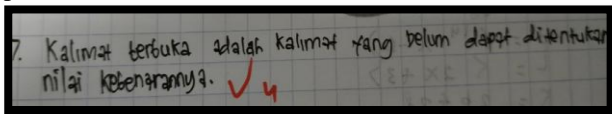 7. Kalimat terbuka adalah kalimat yang belum dapat ditentukan
nilai kebenarannya. 4